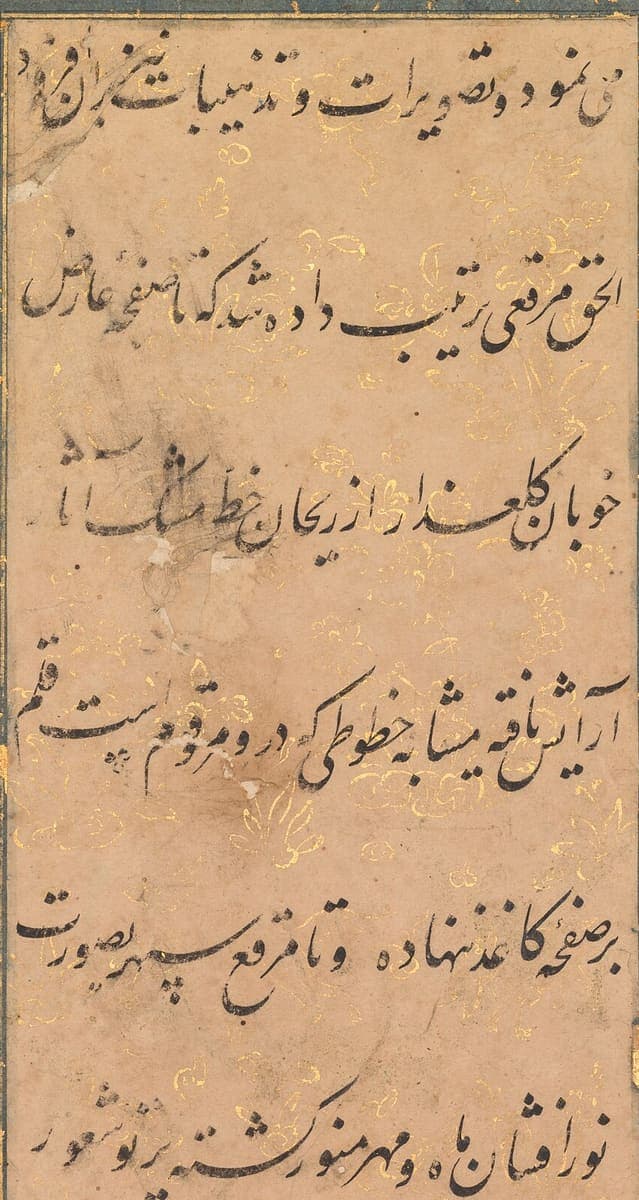 می نمود و تصویرات و تذهیبات نیز بران افزود
الحق مرقعی ترتیب داده شد که تا صفحهٔ عارض
خوبان گلعذار از ریحان خط مشک آثار
آرایش یافته مشابه خطوطی که درو مرقوم است قلم
بر صفحهٔ کاغذ ننهاده و تا مرقع سپهر بصورت
نور افشان ماه و مهر منور گشته پرتو شعور